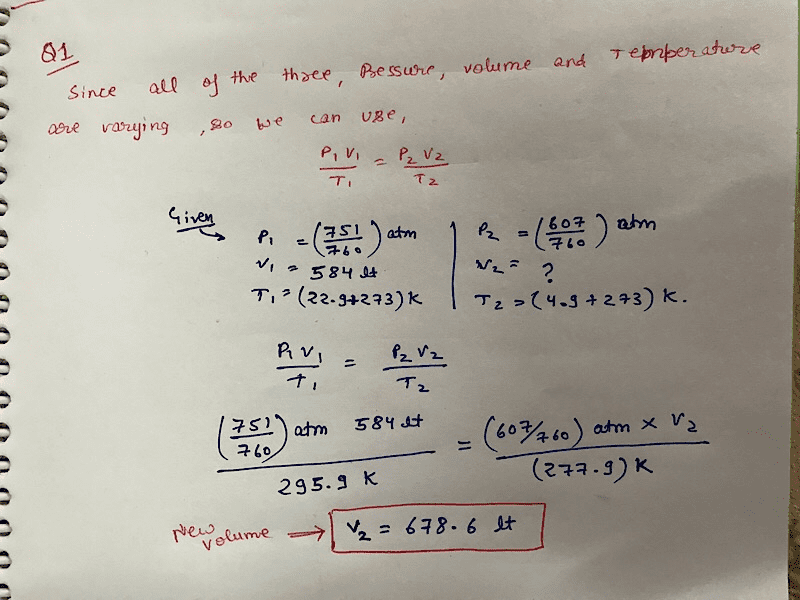 Q1
Since all of the three, Pressure, volume and Temperature
are varying, so we can use,
P₁ V₁ / T₁ = P₂ V₂ / T₂
Given
P₁ = (751/760) atm
V₁ = 584 lt
T₁ = (22.9+273) K
P₂ = (607/760) atm
V₂ = ?
T₂ = (4.9+273) K.
P₁ V₁ / T₁ = P₂ V₂ / T₂
(751/760) atm 584 lt / 295.9 K = (607/760) atm × V₂ / (277.9) K
New volume → V₂ = 678.6 lt